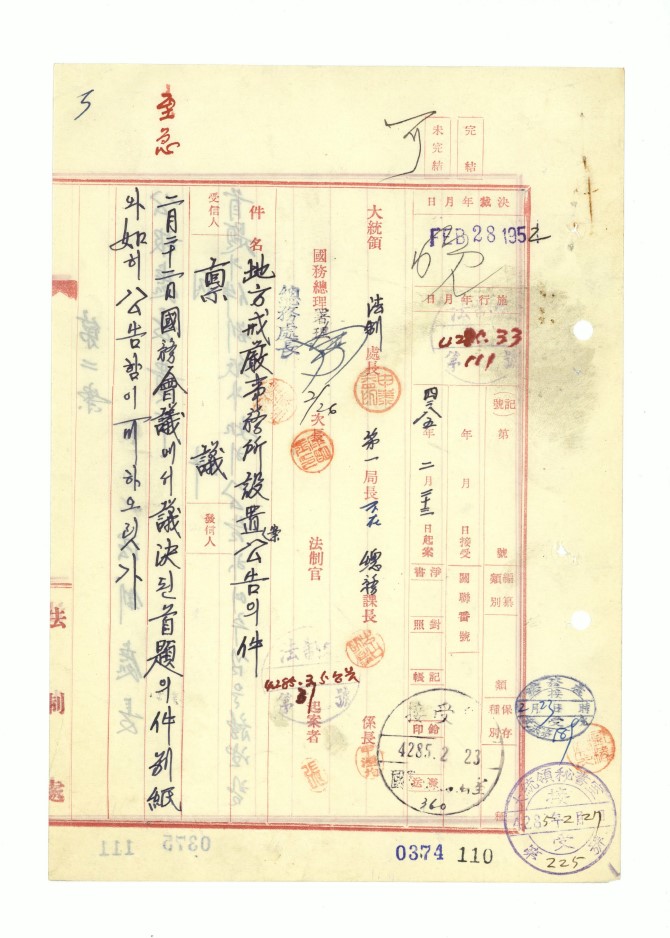 完結
未完結
可
至急
決裁年月日
FEB 28 1952
施行年月日
4285. 3 3
第 111 號
記號
第 號
年 月 日接受
四二八五年 二月 二十三日起案
編纂類別
類
保存種別
種
關聯番號
淨書
對照
記帳
鈐印
大統領
法制 處長
第一 局長 不在
總務 課長
係長
國務總理 署理
總務處長
2/26
次長
法制官
起案者
件名
地方戒嚴事務所設置案公告의件
受信人
發信人
稟 議
二月二十二日國務會議에서議決된首題의件別紙
와如히公告함이可하오릿가
法制處
4285. 3. 5. 公告
接受
4285. 2 23
360
大統領秘書室
接受
4285年2月27日
第 225 號
0374 110
0375
111